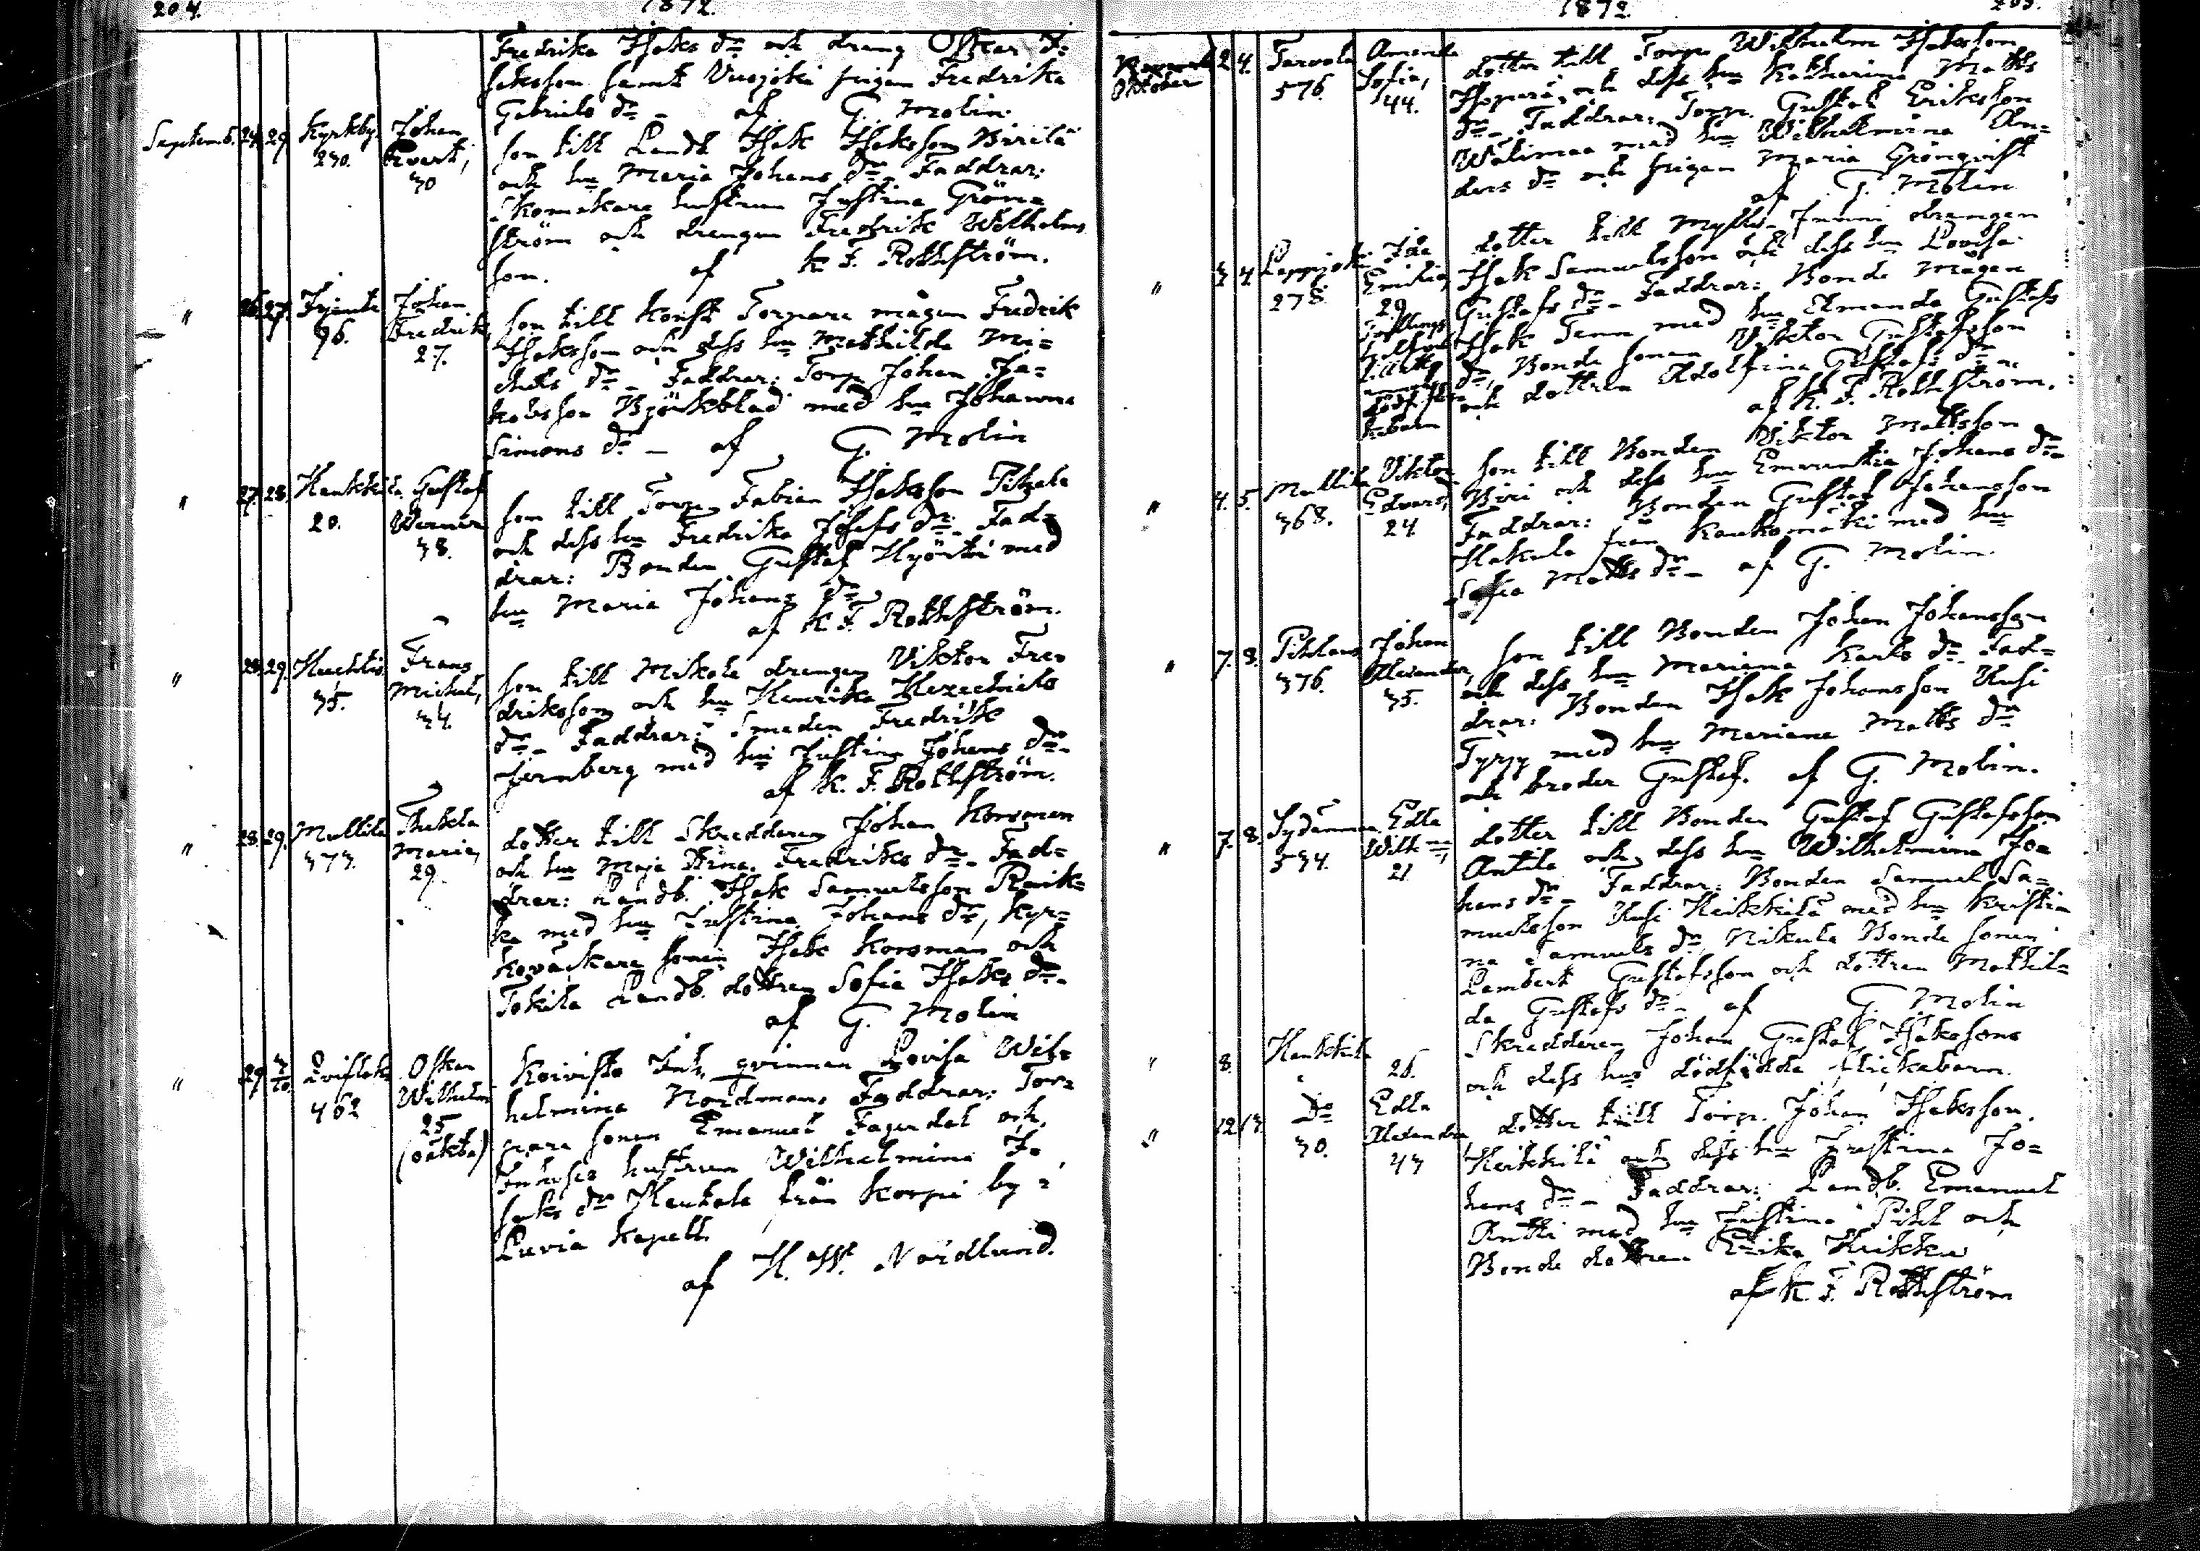 204.
1872.
Fredrika Isaks dr och dräng Oskar I=
saksson samt Vuojoki pigan Fredrika
Gabriels dr - af G. Molin.
Septemb. 24. 29. Kyrkby 230. Johan Evert, 30
son till Landb. Isak Isaksson Birilä
och hu Maria Johans dr. Faddrar:
Skomakare hustrun Justina Grön=
ström och drengen Fredrik Wilhelms
son. af K. F. Rothström.
" 26. 27. Irjanta 96. Johan Fredrik, 27.
son till Konst Torpare mågen Fredrik
Isaksson och dess hu Mathilda Mi=
chels dr - Faddrar: Torp. Johan Ja=
kobsson Björkblad med hu Johanna
Simons dr - af G. Molin
" 27. 28. Haukkila 20. Gustaf Werner 38.
son till Torp. Fabian Isaksson Pitkälä
och dess hu Fredrika Josefs dr. Fad=
drar: Bonden Gustaf Hyörtti med
hu Maria Johans dr
af K. F. Rothström.
" 28. 29. Huchtis 35. Frans Michel, 34.
son till Mikola drengen Viktor Fre=
driksson och hu Henrika Hezechiels
dr - Faddrar: Smeden Fredrik
Jernberg med hu Justina Johans dr -
af K. F. Rothström.
" 28. 29. Mullila 373. Thekla Maria, 29.
dotter till Skreddaren Johan Korsman
och hu Maja Stina Fredriks dr. Fad=
drar: Landb. Isak Samuelsson Raik=
ka med hu Justina Johans dr, Kyr=
koväktare sonen Isak Korsman och
Tokila Landb. dottren Sofia Isaks dr -
af G. Molin
" 29. 3/10. Lviflaks 462 Oskar Wilhelm 25 (oäkta)
Koivisto Inh. qvinnan Lovisa Wil=
helmina Nordman. Faddrar: Tor=
pare sonen Emanuel Fagerdal och
Inhyses hustrun Wilhelmina I=
saks dr Haukala från Korpi by i
Luvia Kapell.
af H. W. Nordlund.
1872.
205.
Oktober 2. 4. Tarvola 576. Amanda Sofia, 44.
dotter till Torp. Wilhelm Isaksson
och dess hu Katharina Matts
dr. Faddrar: Torp. Gustaf Eriksson
Wälimaa med hu Wilhelmina An=
ders dr och pigan Maria Grönqvist
af G. Molin
" 3 4 Lappijoki 278. Ida Emilia, 29
dotter till Mylly-Junni drengen
Isak Samuelsson och dess hu Lovisa
Gustafs dr - Faddrar: Bonde mågen
Isak Tenn med hu Amanda Gustafs
dr, Bonde sonen Viktor Gustafsson
och dottren Adolfina Gustafs dr.
af K. F. Rothström.
" 4. 5. Mullila 368. Viktor Edvard, 24
son till Bonden Viktor Mattsson
Viri och dess hu Emerentia Johans dr -
Faddrar: Bonden Gustaf Johansson
Hakula från Kaukomäki med hu
Sofia Matts dr - af G. Molin.
" 7. 8. Pihlaus 376. Johan Alexander, 35.
son till Bonden Johan Johansson
och dess hu Mariana Karls dr. Fad=
drar: Bonden Isak Johansson Uusi
Tyry med hu Mariana Matts dr
och broder Gustaf. af G. Molin.
" 7. 8. Sydänmaa 594. Edla Wilh=, 21
dotter till Bonden Gustaf Gustafsson
Antila och dess hu Wilhelmina Jo=
hans dr - Faddrar: Bonden Samuel Sa=
muelsson Uusi Heikkilä med hu Kristi=
na Samuels dr, Nikula Bonde sonen
Lambert Gustafsson och dottren Mathil=
da Gustafs dr - af G. Molin
" 8. Haukkila 26.
Skreddaren Johan Gustaf Isakssons
och dess hus dödfödda flickabarn.
" 12 13. Do 30. Edla Alexandra 43
dotter till Torp. Johan Isaksson
Heikkilä och dess hu Justina Jo=
hans dr - Faddrar: Landb. Emanuel
Antti med hu Justina Pihl och
Bonde dottren Erika Heikku
af K. F. Rothström